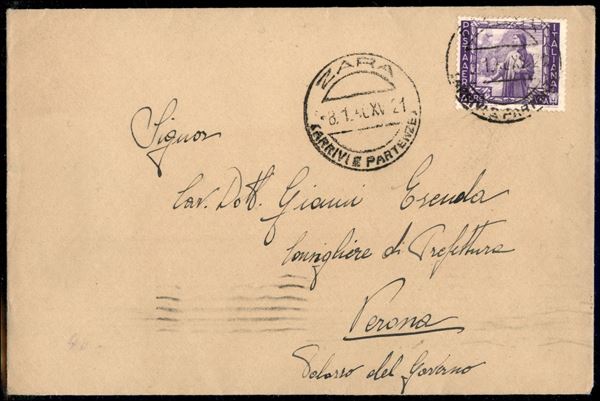 POSTA AEREA
ITALIANA
ZARA
8.1.40.XV 21
(ARRIVI E PARTENZE)
Signor
Cav. Dott. Gianni Escuda
Consigliere di Prefettura
Verona
Palazzo del Governo